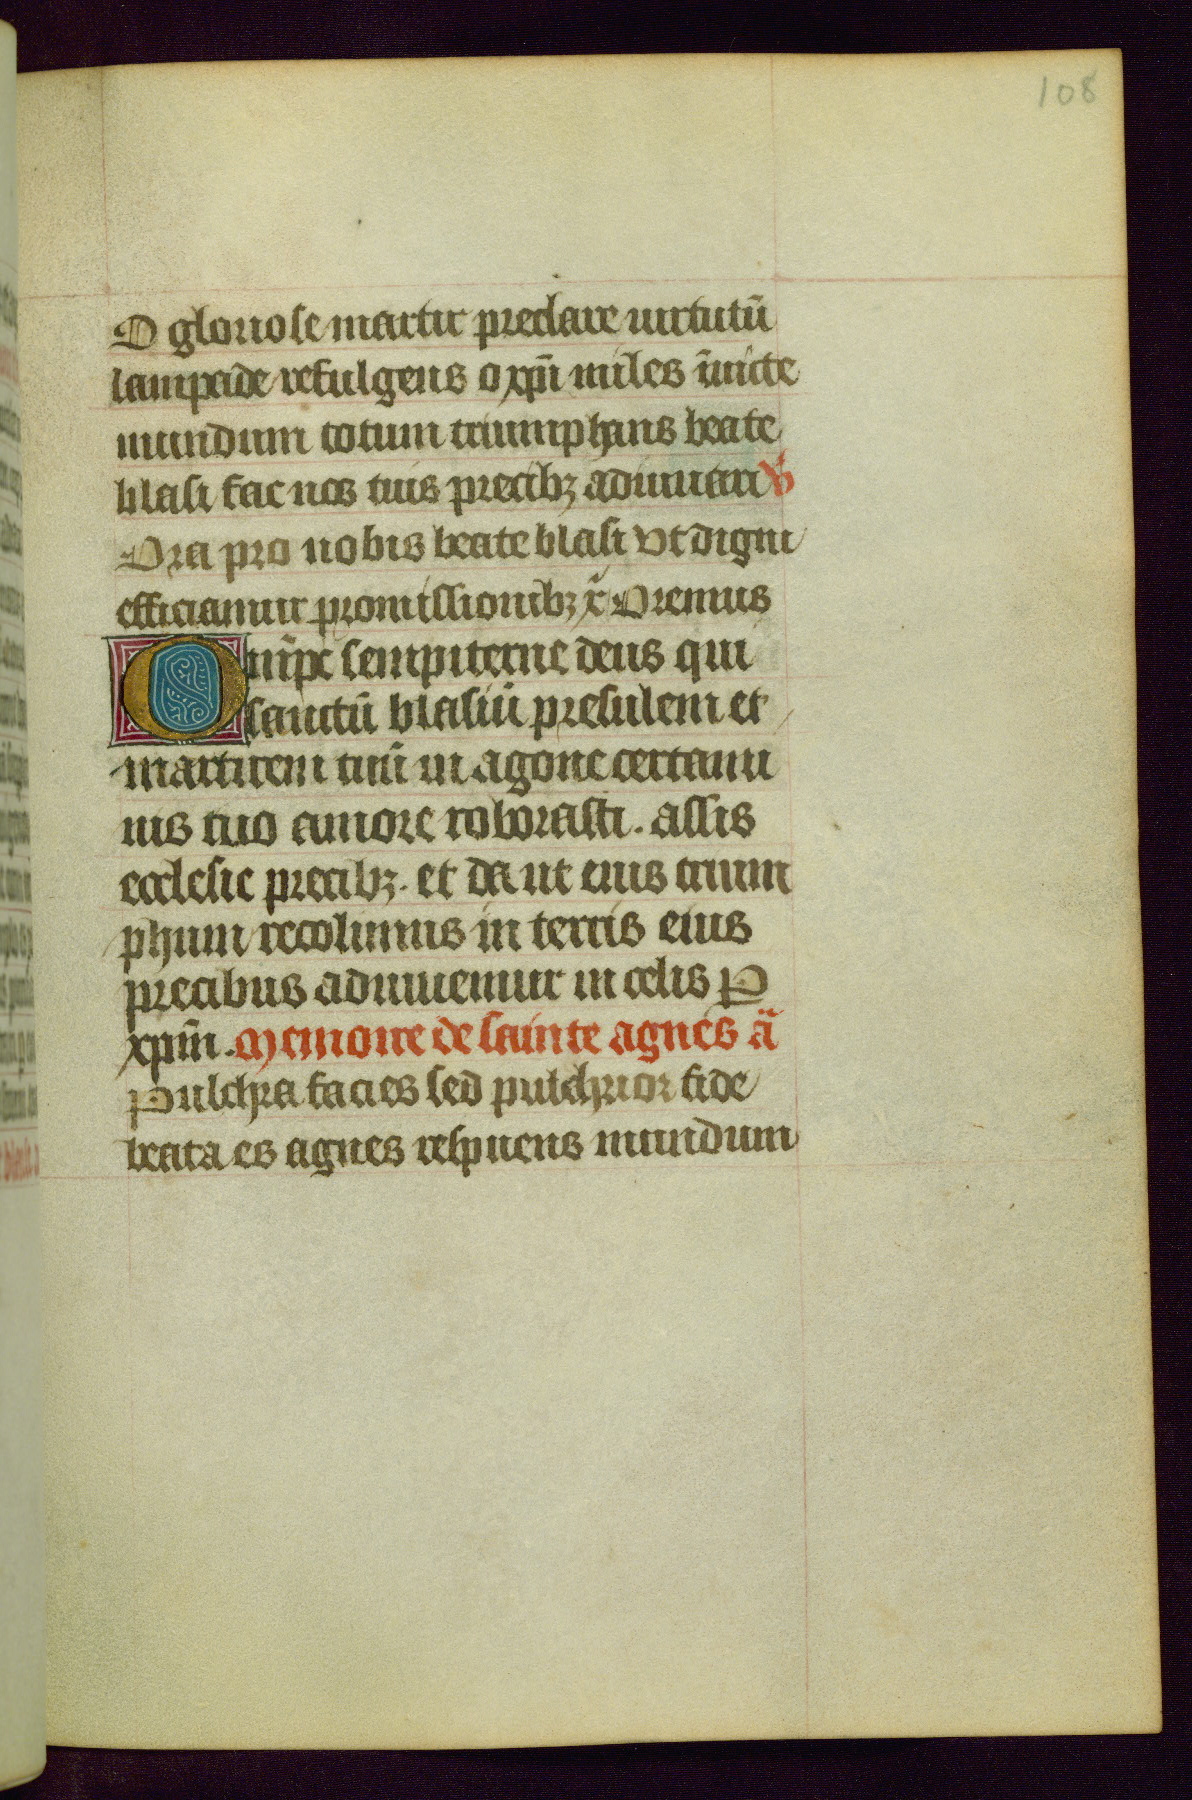 108
O gloriose martir preclare uirtutū
lampade refulgens o xp̄i miles īuicte
mundum totum triumphans beate
blasi fac nos tuis precibꝫ adiuuari ℣
Ora pro nobis beate blasi vt digni
efficiamur promissionibꝫ x̄ Oremus
Omīpc sempiterne deus qui
sanctū blasiū presulem et
martirem tuū in agone certami
nis tuo amore roborasti. assis
ecclesie precibꝫ. et da ut eius trium
phum recolimus in terris eius
precibus adiuuemur in celis P
xp̄m. Memoire de sainte agnes ā
Pulchra facies sed pulchrior fide
beata es agnes respuens mundum